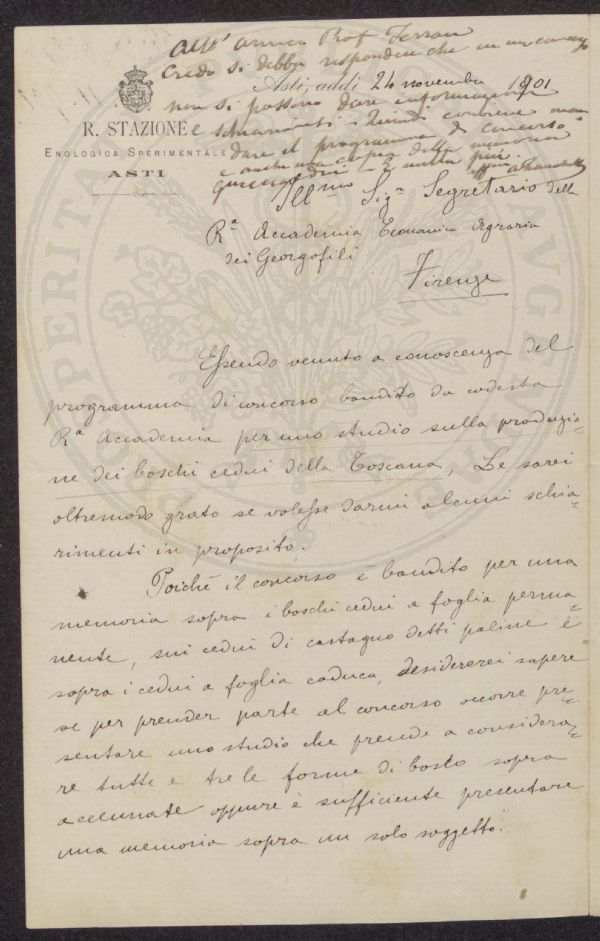 All' amico Prof Ferrari
Credo si debba rispondere che in un concorso
Asti, addì 24 novembre 1901
non si possono dare informazioni
R. STAZIONE
e schiarimenti. Quindi conviene
ENOLOGICA SPERIMENTALE
dare il programma di concorso
ASTI
e anche una copia della memoria
Ill.mo Sig.r Segretario della
R.a Accademia Economica Agraria
dei Georgofili
Firenze
Essendo venuto a conoscenza del
programma di concorso bandito da codesta
R.a Accademia per uno studio sulla produzio=
ne dei boschi cedui della Toscana, Le sarei
oltremodo grato se volesse darmi alcuni schia=
rimenti in proposito.
Poichè il concorso è bandito per una
memoria sopra i boschi cedui a foglia perma=
nente, sui cedui di castagno detti paline e
sopra i cedui a foglia caduca, desidererei sapere
se per prender parte al concorso occorre pre=
sentare uno studio che prende a considera=
re tutte e tre le forme di bosco sopra
accennate oppure è sufficiente presentare
una memoria sopra un solo soggetto.
PROSPERITATI
AVGENDAE